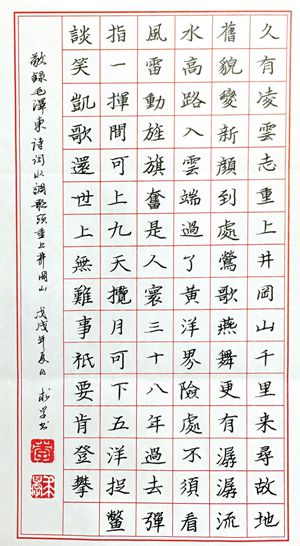 久有凌雲志重上井岡山千里来尋故地
舊貌變新顏到處鶯歌燕舞更有潺潺流
水高路入雲端過了黃洋界險處不須看
風雷動旌旗奮是人寰三十八年過去彈
指一揮間可上九天攬月可下五洋捉鱉
談笑凱歌還世上無難事祇要肯登攀
敬錄毛澤東詩詞水調歌頭重上井岡山 戊戌年夏月